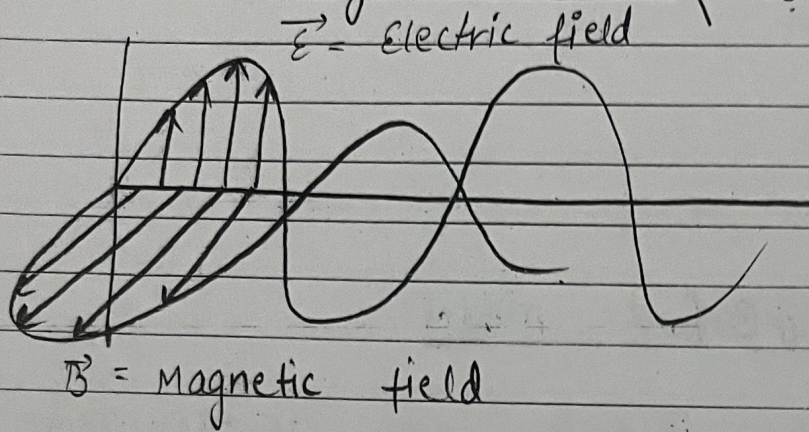 $\vec{\varepsilon}$ = Electric field
$\vec{B}$ = Magnetic field